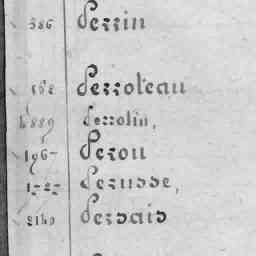 386 Perrin
Perroteau
889 Perrolin,
196 Perou
Perusse,
2140 Persais